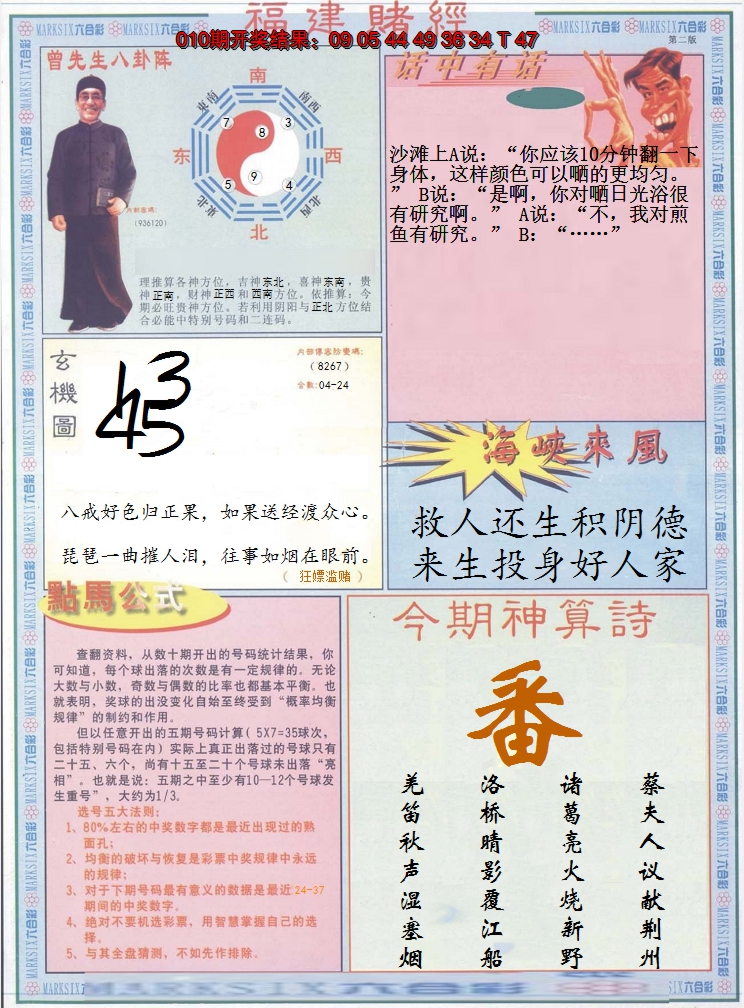 福建賭經
MARKSIX六合彩 MARKSIX六合彩 MARKSIX六合彩 MARKSIX六合彩
010期开奖结果：09 05 44 49 36 34 T 47
第二版
曾先生八卦阵
南
東南 南西
7 8 3
东 西
5 9 4
東北 北西
北
内部密碼:
(936120)
理推算各神方位，吉神东北，喜神东南，贵
神正南，财神正西和西南方位。依推算：今
期必旺贵神方位。若利用阴阳与正北方位结
合必能中特别号码和二连码。
话中有话
沙滩上A说：“你应该10分钟翻一下
身体，这样颜色可以晒的更均匀。
” B说：“是啊，你对晒日光浴很
有研究啊。” A说：“不，我对煎
鱼有研究。” B：“……”
玄機圖
3
45
（8267）
合数:04-24
八戒好色归正果，如果送经渡众心。
琵琶一曲摧人泪，往事如烟在眼前。
（ 狂嫖滥赌 ）
海峽來風
救人还生积阴德
来生投身好人家
點馬公式
查翻资料，从数十期开出的号码统计结果，你
可知道，每个球出落的次数是有一定规律的。无论
大数与小数，奇数与偶数的比率也都基本平衡。也
就表明，奖球的出没变化自始至终受到“概率均衡
规律”的制约和作用。
但以任意开出的五期号码计算( 5X7=35球次，
包括特别号码在内）实际上真正出落过的号球只有
二十五、六个，尚有十五至二十个号球未出落“亮
相”。也就是说：五期之中至少有10—12个号球发
生重号”，大约为1/3。
选号五大法则：
1、80%左右的中奖数字都是最近出现过的熟
面孔；
2、均衡的破坏与恢复是彩票中奖规律中永远
的规律；
3、对于下期号码最有意义的数据是最近24-37
期间的中奖数字。
4、绝对不要机选彩票，用智慧掌握自己的选
择。
5、与其全盘猜测，不如先作排除。
今期神算詩
番
蔡夫人议献荆州
诸葛亮火烧新野
洛桥晴影覆江船
羌笛秋声湿塞烟